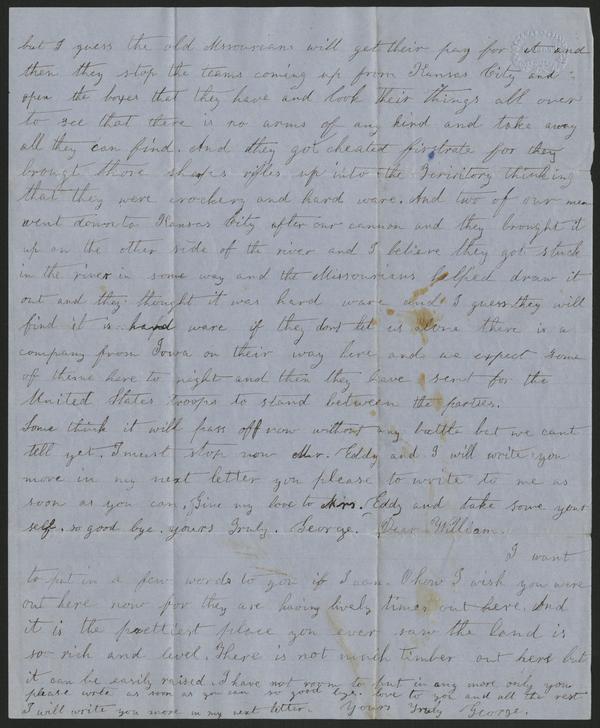 but I guess the old Missourians will get their pay for it and
then they stop the teams coming up from Kansas City and
open the boxes that they have and look their things all over
to see that there is no arms of any kind and take away
all they can find. And they got cheated firstrate for they
brougt those sharps rifles up into the Teriritory thinking
that they were crockery and hard ware. And two of our men
went down to Kansas City after our cannon and they brought it
up on the other side of the river and I believe they got stuck
in the river in some way and the Missourians helped draw it
out and they thought it was hard ware and I guess they will
find it is hard ware if they dont let us alone there is a
company from Iowa on their way here and we expect some
of theme here to night and then they have sent for the
United States troops to stand between the parties.
Some think it will pass off now without any battle but we cant
tell yet. I must stop now Mr. Eddy and I will write you
more in my next letter you please to write to me as
soon as you can. Give my love to Mrs. Eddy and take some your
self. so good bye. yours Truly. George. Dear William.
I want
to put in a few words to you if I can. O how I wish you were
out here now for they are having lively times out here. And
it is the prettiest place you ever saw the land is
so rich and level. There is not much timber out here but
it can be easily raised. I have not room to put in any more only you
please write as soon as you can so good bye. love to you and all the rest
I will write you more in my next letter. Yours Truly George.